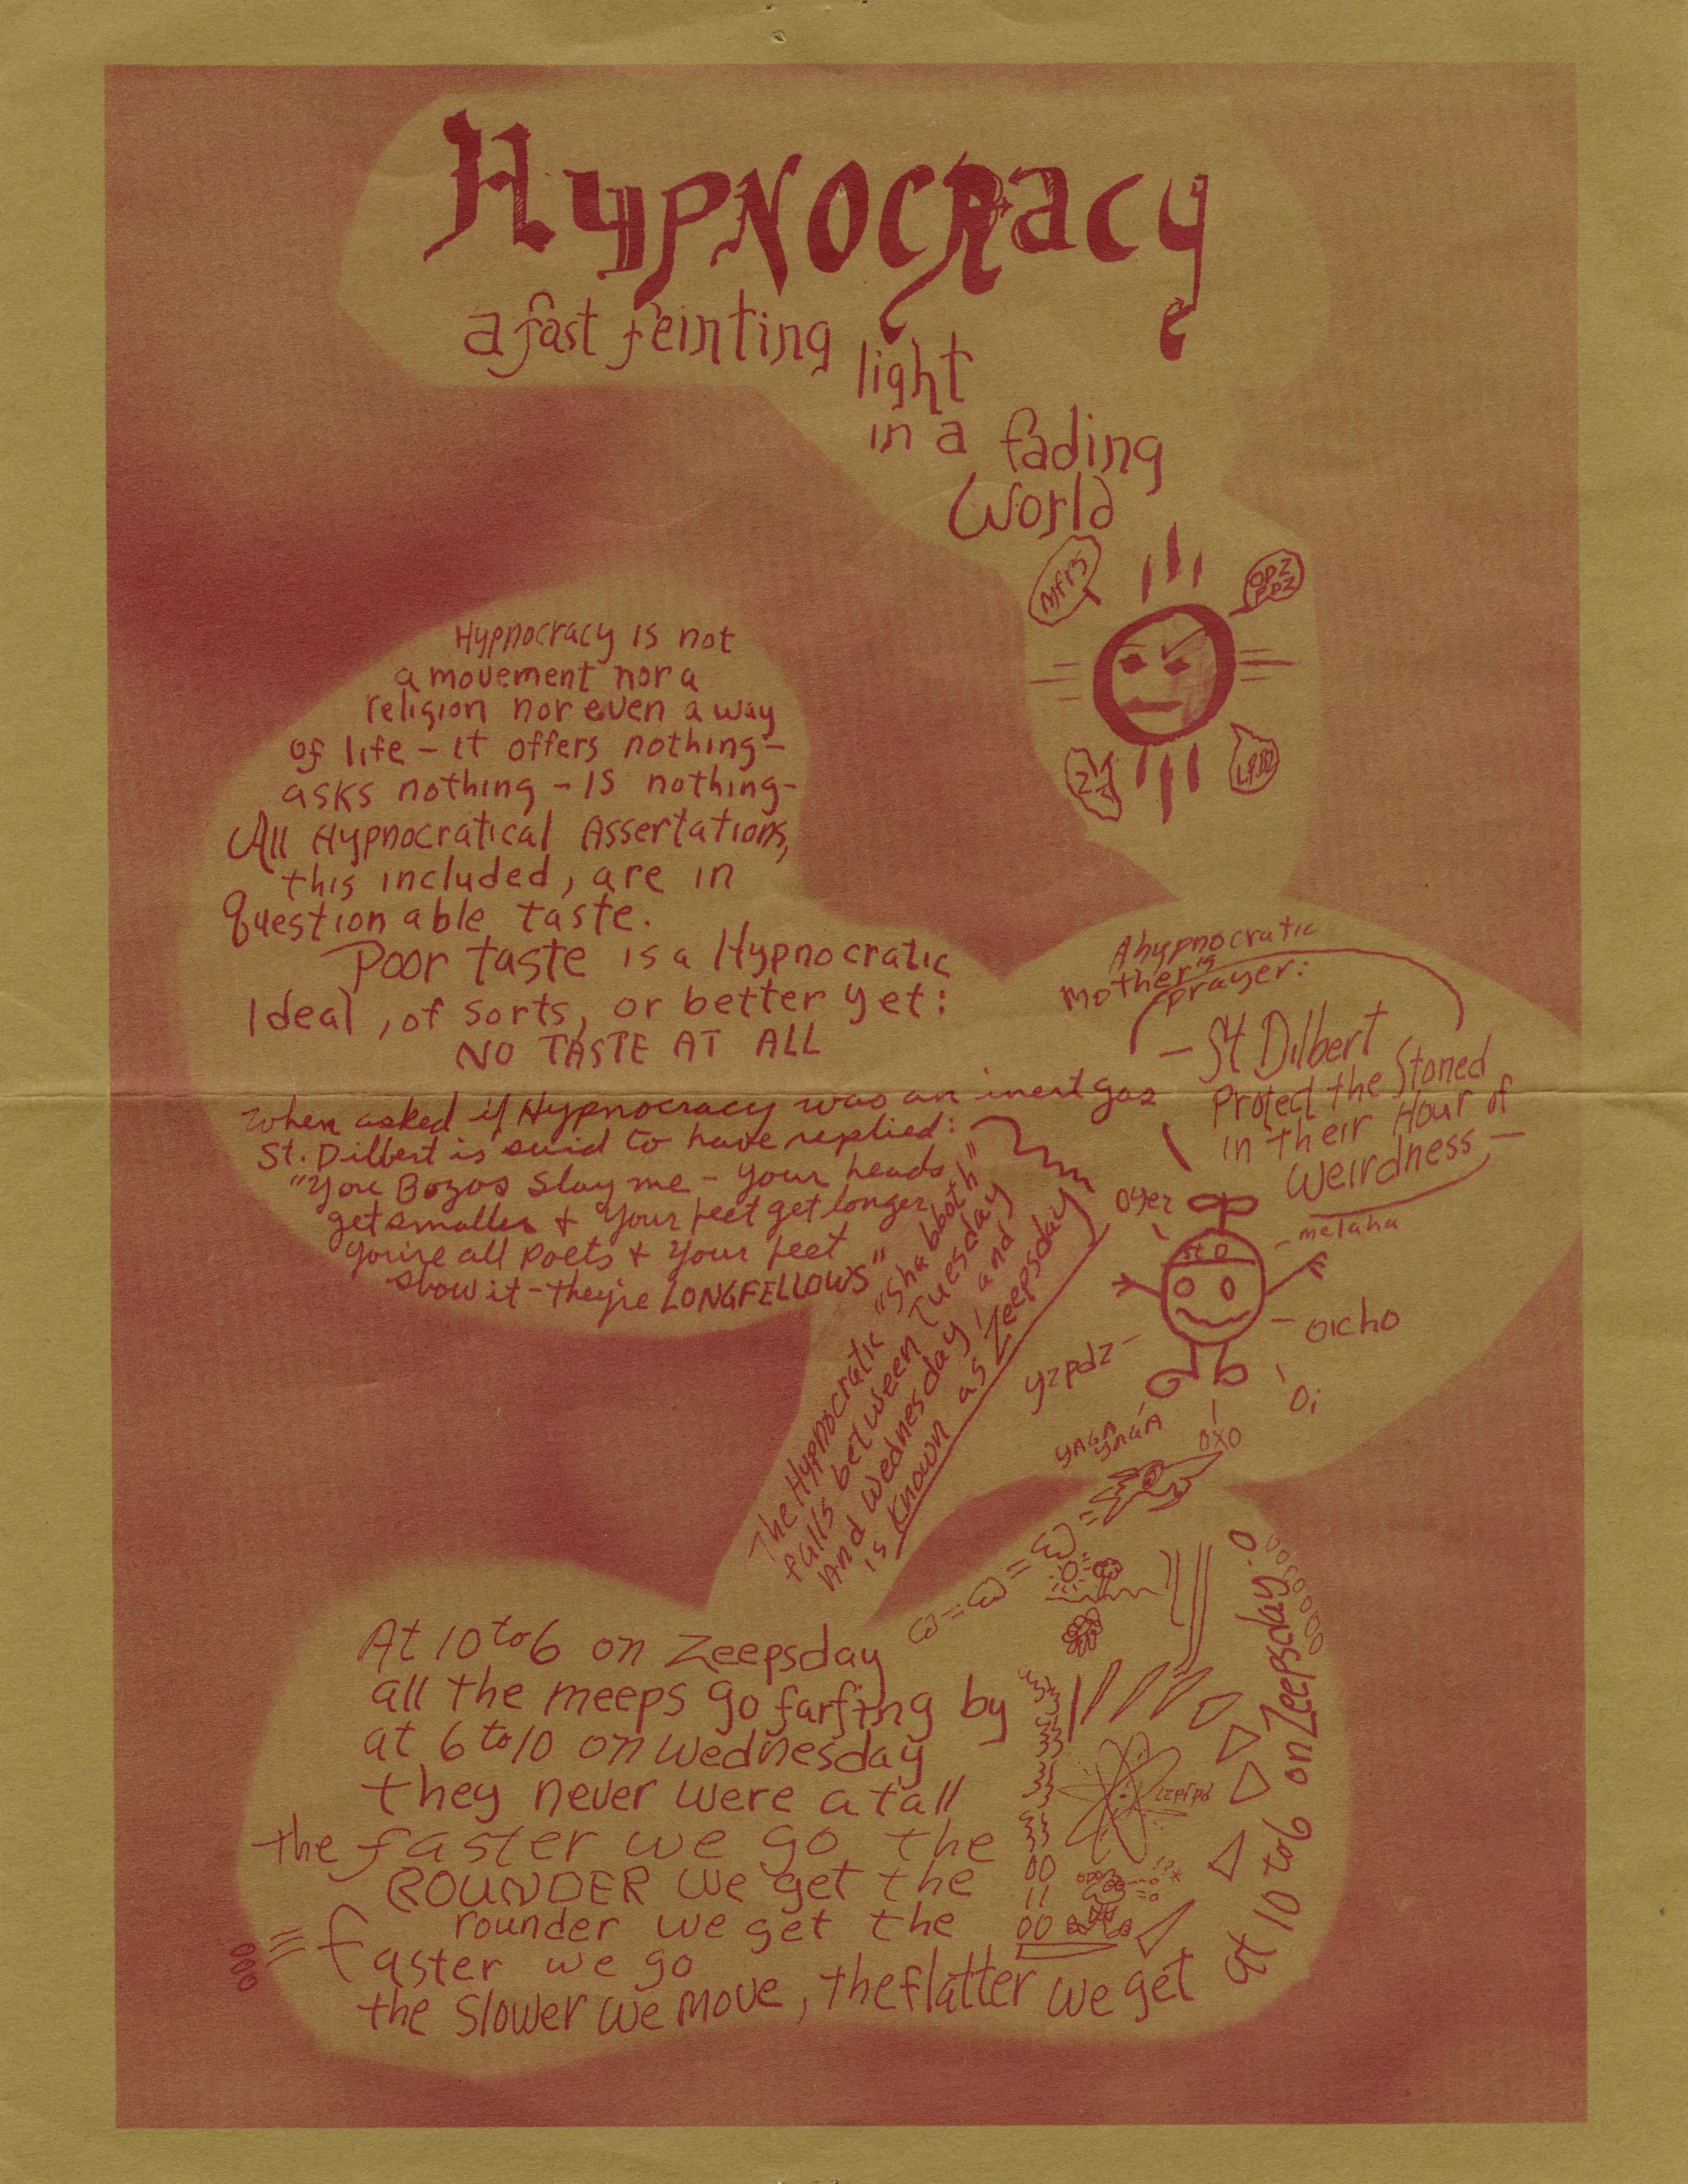 Hypnocracy
a fast feinting
light
in a fading
World
Mfrs
OPZ
PPZ
Hypnocracy is not
a movement nor a
religion nor even a way
of life – it offers nothing –
asks nothing – IS nothing –
All Hypnocratical Assertations,
this included, are in
question able taste.
Poor taste is a Hypnocratic
Ideal, of sorts, or better yet:
NO TASTE AT ALL
A hypnocratic
mother's
prayer:
– St Dilbert
Protect the Stoned
in their Hour of
Weirdness –
when asked if Hypnocracy was an inert gas
St. Dilbert is said to have replied:
"You Bozos slay me – your heads
get smaller & your feet get longer
you're all poets & your feet
show it – they're LONGFELLOWS"
The Hypnocratic "Shabboth"
falls between Tuesday
And Wednesday, and
is known as Zeepsday
oyez
melaha
St D
oicho
yzpdz
Oi
YAGA
YAGA
OXO
At 10 to 6 on Zeepsday
all the meeps go farfing by
at 6 to 10 on Wednesday
they never were at all
the faster we go the
ROUNDER we get the
rounder we get the
faster we go
the slower we move, the flatter we get
at 10 to 6 on Zeepsday.